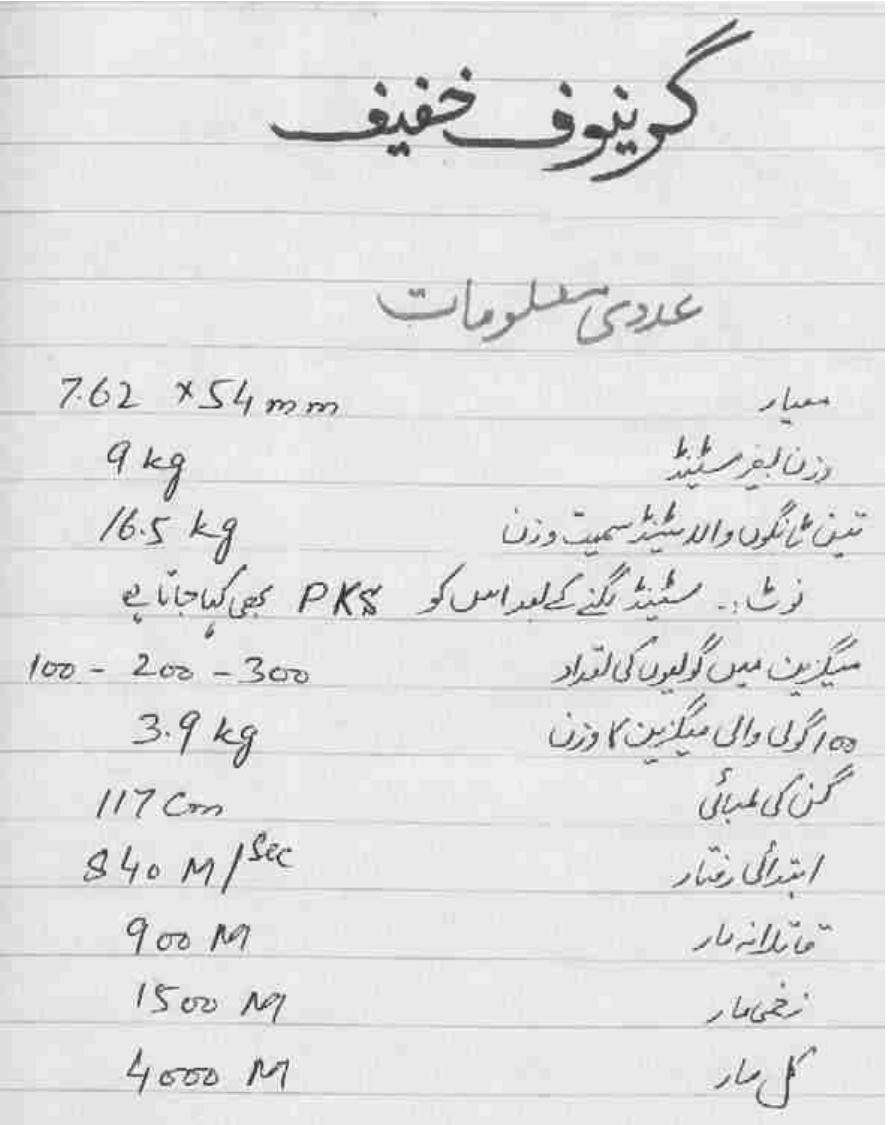 گرینوف خفیف
عددی معلومات
معیار 7.62 × 54 mm
وزن بغیر سٹینڈ 9 kg
تین ٹانگوں والا سٹینڈ سمیت وزن 16.5 kg
نوٹ:۔ سٹینڈ لگنے کے بعد اس کو PKS بھی کہا جاتا ہے
میگزین میں گولیوں کی تعداد 100 - 200 - 300
100 گولی والی میگزین کا وزن 3.9 kg
گن کی لمبائی 117 Cm
ابتدائی رفتار 840 M/Sec
قاتلانہ مار 900 M
زخمی مار 1500 M
کل مار 4000 M